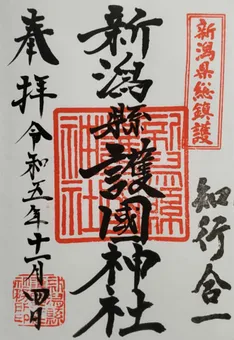 新潟県総鎮護
知行合一
新潟縣護國神社
奉拝
令和五年十一月四日